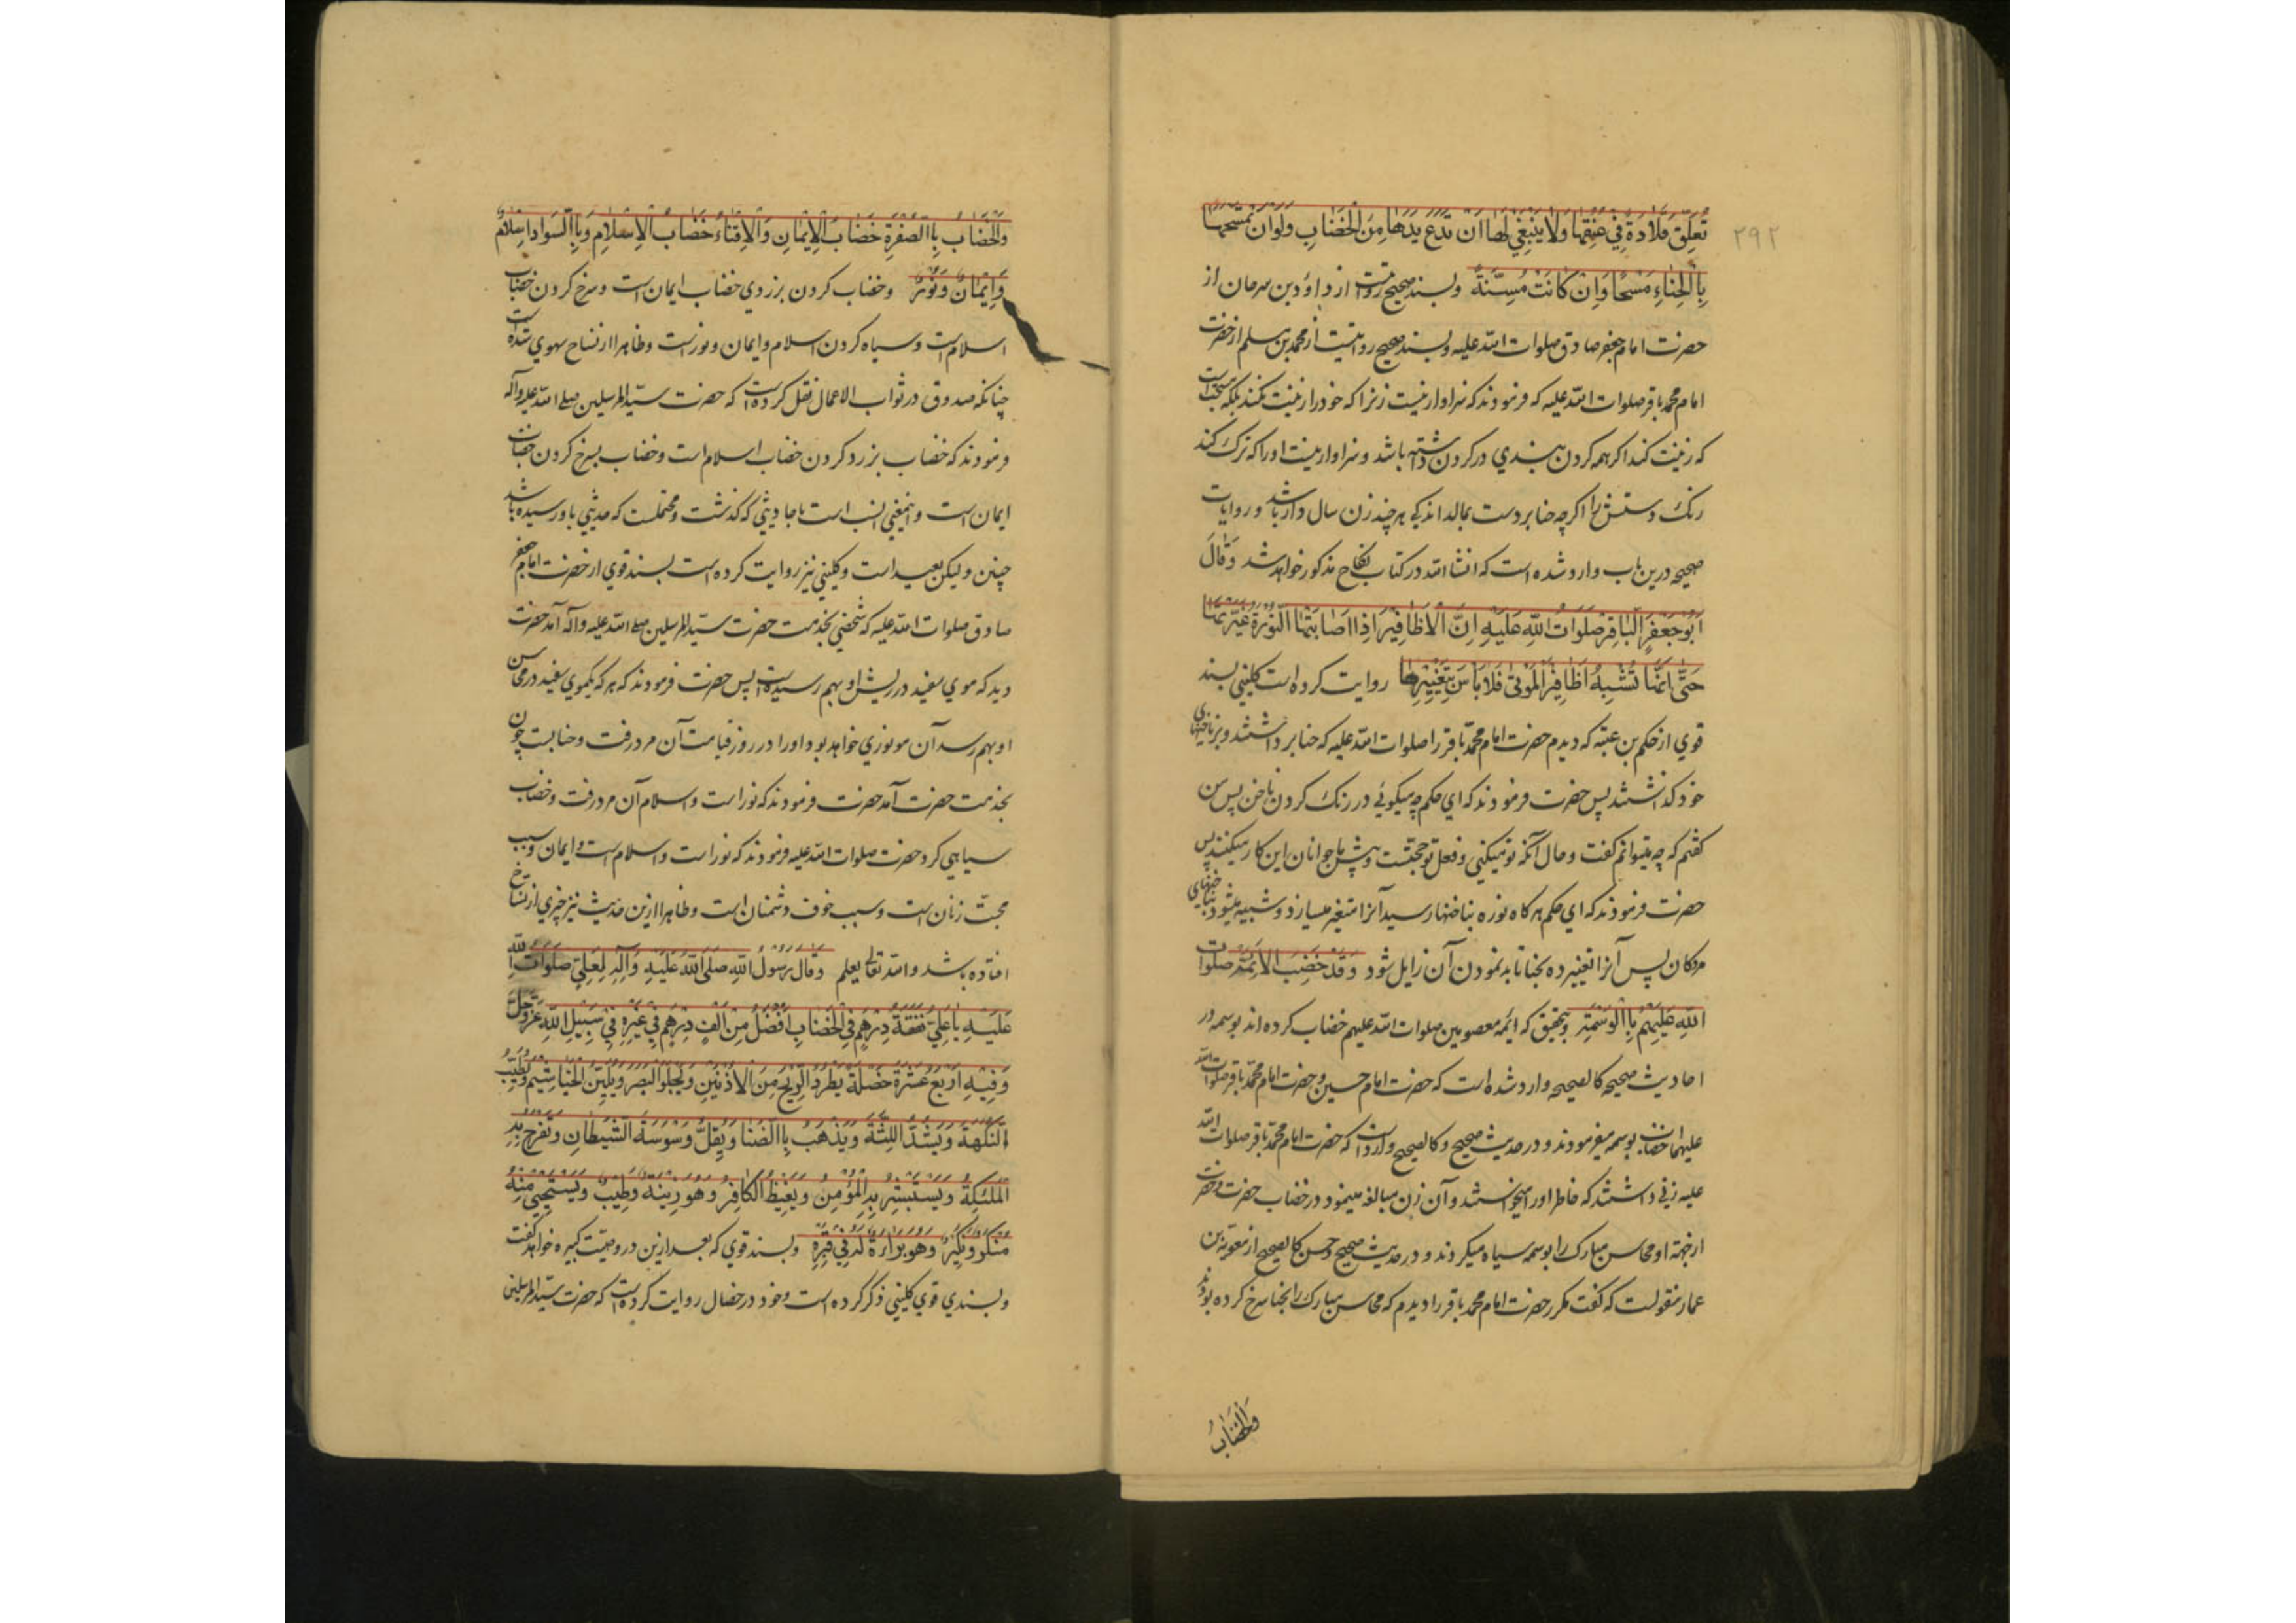 ۲۹۲
تُعَلِّقَ قَلَادَةً فِي عُنُقِهَا وَلَا يَنْبَغِي لَهَا اَنْ تَدَعَ يَدَهَا مِنَ الْخِضَابِ وَلَوْ اَنْ تَمْسَحَهَا
بِالْحِنَّاءِ مَسْحًا وَاِنْ كَانَتْ مُسِنَّةً وبسند صحیح روایتست از داؤد بن سرحان از
حضرت امام جعفر صادق صلوات الله علیه وبسند صحیح روایتست از محمد بن مسلم از حضرت
امام محمد باقر صلوات الله علیه که فرمودند که سزاوار نیست زنرا که خود را زینت نکند بلکه مستحبست
که زینت کند اکر همه کردن بندی در کردن داشته باشد وسزاوار نیست او را که ترک کند
رنک دستش را اکرچه حنا بر دست بمالد اندکی هر چند زن سال دار باشد وروایات
صحیحه درین باب وارد شده است که انشا الله در کتاب نکاح مذکور خواهد شد وَقَالَ
اَبُو جَعْفَرٍ الْبَاقِرُ صَلَوَاتُ اللهِ عَلَيْهِ اِنَّ الْاَظَافِيرَ اِذَا اَصَابَتْهَا النُّورَةُ غَيَّرَتْهَا
حَتَّى اِنَّهَا تُشْبِهُ اَظَافِيرَ الْمَوْتَى فَلَا بَاْسَ بِتَغْيِيرِهَا روایت کرده است کلینی بسند
قوی از حکم بن عتبه که دیدم حضرت امام محمد باقر را صلوات الله علیه که حنا برداشتند وبر ناخنهای
خود کذاشتند پس حضرت فرمودند که ای حکم چه میکوئی در رنک کردن ناخن پس من
کفتم که چه میتوانم کفت وحال آنکه تو میکنی وفعل تو حجتست وپیش ما جوانان این کار میکنند پس
حضرت فرمودند که ای حکم هر کاه نوره بناخنها رسید آنرا متغیر میسازد وشبیه میشود بناخنهای
مردکان پس آنرا تغییر ده بحنا تا بد نمودن آن زایل شود وَقَدْ خَضَبَ الْاَئِمَّةُ صَلَوَاتُ
اللهِ عَلَيْهِمْ بِالْوَسْمَةِ وبتحقیق که ائمه معصومین صلوات الله علیهم خضاب کرده اند بوسمه در
احادیث صحیحه کالصحیحه وارد شده است که حضرت امام حسین وحضرت امام محمد باقر صلوات الله
علیهما خضاب بوسمه میفرمودند ودر حدیث صحیح وکالصحیح وارد است که حضرت امام محمد باقر صلوات الله
علیه زنی داشتند که خاطر او را میخواستند وآن زن مبالغه مینمود در خضاب حضرت وحضرت
ازجهة او محاسن مبارک را بوسمه سیاه میکردند ودر حدیث صحیح وحسن کالصحیح از معویة بن
عمار منقولست که کفت مکرر حضرت امام محمد باقر را دیدم که محاسن مبارک را بحنا سرخ کرده بودند
وَالْخِضَابُ
وَالْخِضَابُ بِالصُّفْرَةِ خِضَابُ الْاِيمَانِ وَالْاِقْنَاءُ خِضَابُ الْاِسْلَامِ وَبِالسَّوَادِ اِسْلَامٌ
وَاِيمَانٌ وَنُورٌ وخضاب کردن بزردی خضاب ایمان است وسرخ کردن خضاب
اسلام است وسیاه کردن اسلام وایمان ونور است وظاهرا از نساخ سهوی شده است
چنانکه صدوق در ثواب الاعمال نقل کرده است که حضرت سید المرسلین صلی الله علیه وآله
فرمودند که خضاب بزرد کردن خضاب اسلام است وخضاب بسرخ کردن خضاب
ایمان است واینمعنی انسب است باحادیثی که کذشت ومحتملست که حدیثی باو رسیده باشد
چنین ولیکن بعید است وکلینی نیز روایت کرده است بسند قوی از حضرت امام جعفر
صادق صلوات الله علیه که شخصی بخدمت حضرت سید المرسلین صلی الله علیه وآله آمد حضرت
دید که موی سفید در ریش او بهم رسیده است پس حضرت فرمودند که هر که یکموی سفید در محاسن
او بهم رسد آن مو نوری خواهد بود او را در روز قیامت آن مرد رفت وحنا بست چون
بخدمت حضرت آمد حضرت فرمودند که نور است واسلام آن مرد رفت وخضاب
سیاهی کرد حضرت صلوات الله علیه فرمودند که نور است واسلام است وایمان وسبب
محبت زنان است وسبب خوف دشمنان است وظاهرا ازین حدیث نیز چیزی از نساخ
افتاده باشد والله تعالی یعلم وَقَالَ رَسُولُ اللهِ صَلَّى اللهُ عَلَيْهِ وَآلِهِ لِعَلِيٍّ صَلَوَاتُ اللهِ
عَلَيْهِ يَا عَلِيُّ نَفَقَةُ دِرْهَمٍ فِي الْخِضَابِ اَفْضَلُ مِنْ اَلْفِ دِرْهَمٍ فِي غَيْرِهِ فِي سَبِيلِ اللهِ عَزَّ وَجَلَّ
وَفِيهِ اَرْبَعَ عَشْرَةَ خَصْلَةً يَطْرُدُ الرِّيحَ مِنَ الْاُذُنَيْنِ وَيَجْلُو الْبَصَرَ وَيُلَيِّنُ الْخَيَاشِيمَ وَيُطَيِّبُ
النَّكْهَةَ وَيَشُدُّ اللِّثَةَ وَيَذْهَبُ بِالضَّنَا وَيُقِلُّ وَسْوَسَةَ الشَّيْطَانِ وَتَفْرَحُ بِهِ
الْمَلٰئِكَةُ وَيَسْتَبْشِرُ بِهِ الْمُؤْمِنُ وَيَغِيظُ الْكَافِرَ وَهُوَ زِينَةٌ وَطِيبٌ وَيَسْتَحْيِي مِنْهُ
مُنْكَرٌ وَنَكِيرٌ وَهُوَ بَرَاءَةٌ لَهُ فِي قَبْرِهِ وبسند قوی که بعد ازین در وصیت کبیره خواهد کفت
وبسندی قوی کلینی ذکر کرده است وخود در خصال روایت کرده است که حضرت سید المرسلین